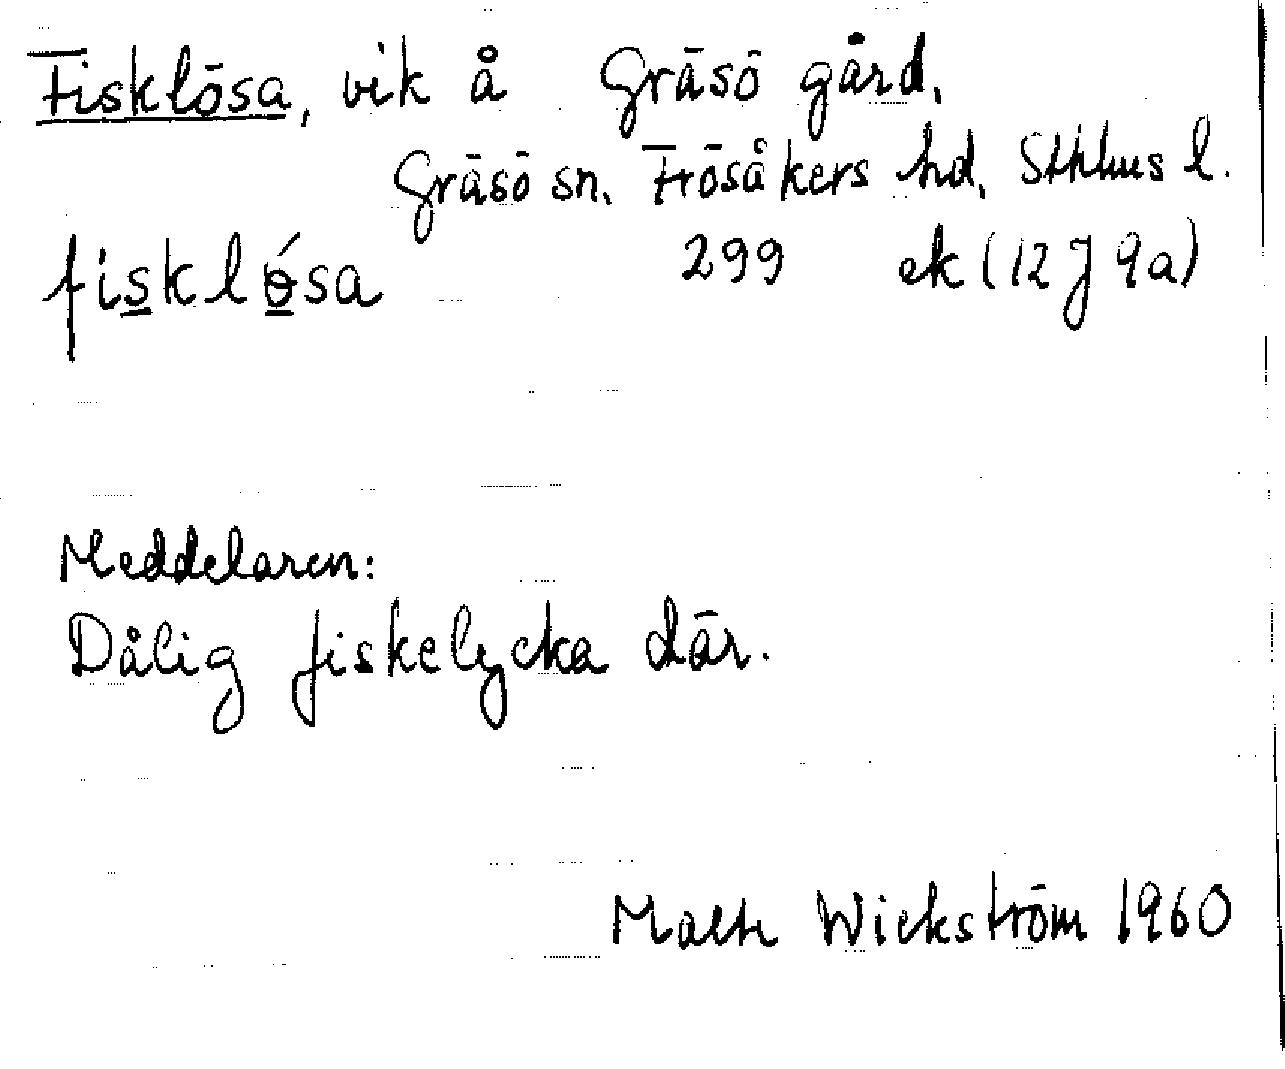 Fisklösa, vik å Gräsö gård,
Gräsö sn. Frösåkers hd, Sthlms l.
fisklɵ́sa 299 ek (12J 9a)
Meddelaren:
Dålig fiskelycka där.
Malte Wickström 1960